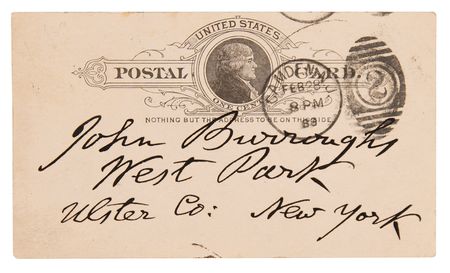 UNITED STATES
POSTAL CARD.
ONE CENT
NOTHING BUT THE ADDRESS TO BE ON THIS SIDE.
CAMDEN, N.J.
FEB 28
8 PM
88
2
John Burroughs
West Park
Ulster Co: New York